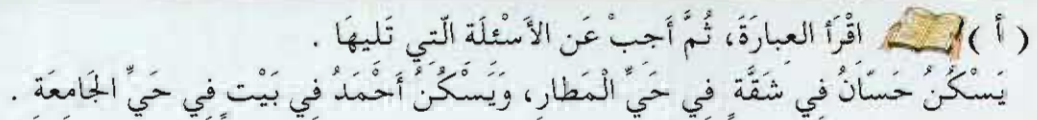 ( أ ) اقْرَأ العِبارَةَ، ثُمَّ أَجِبْ عَنِ الأَسْئِلَةِ الّتِي تَليهَا .
يَسْكُنُ حَسّانُ فِي شَقَّةٍ فِي حَيِّ الْمَطارِ، وَيَسْكُنُ أَحْمَدُ فِي بَيْتٍ فِي حَيِّ الجَامِعَةِ .